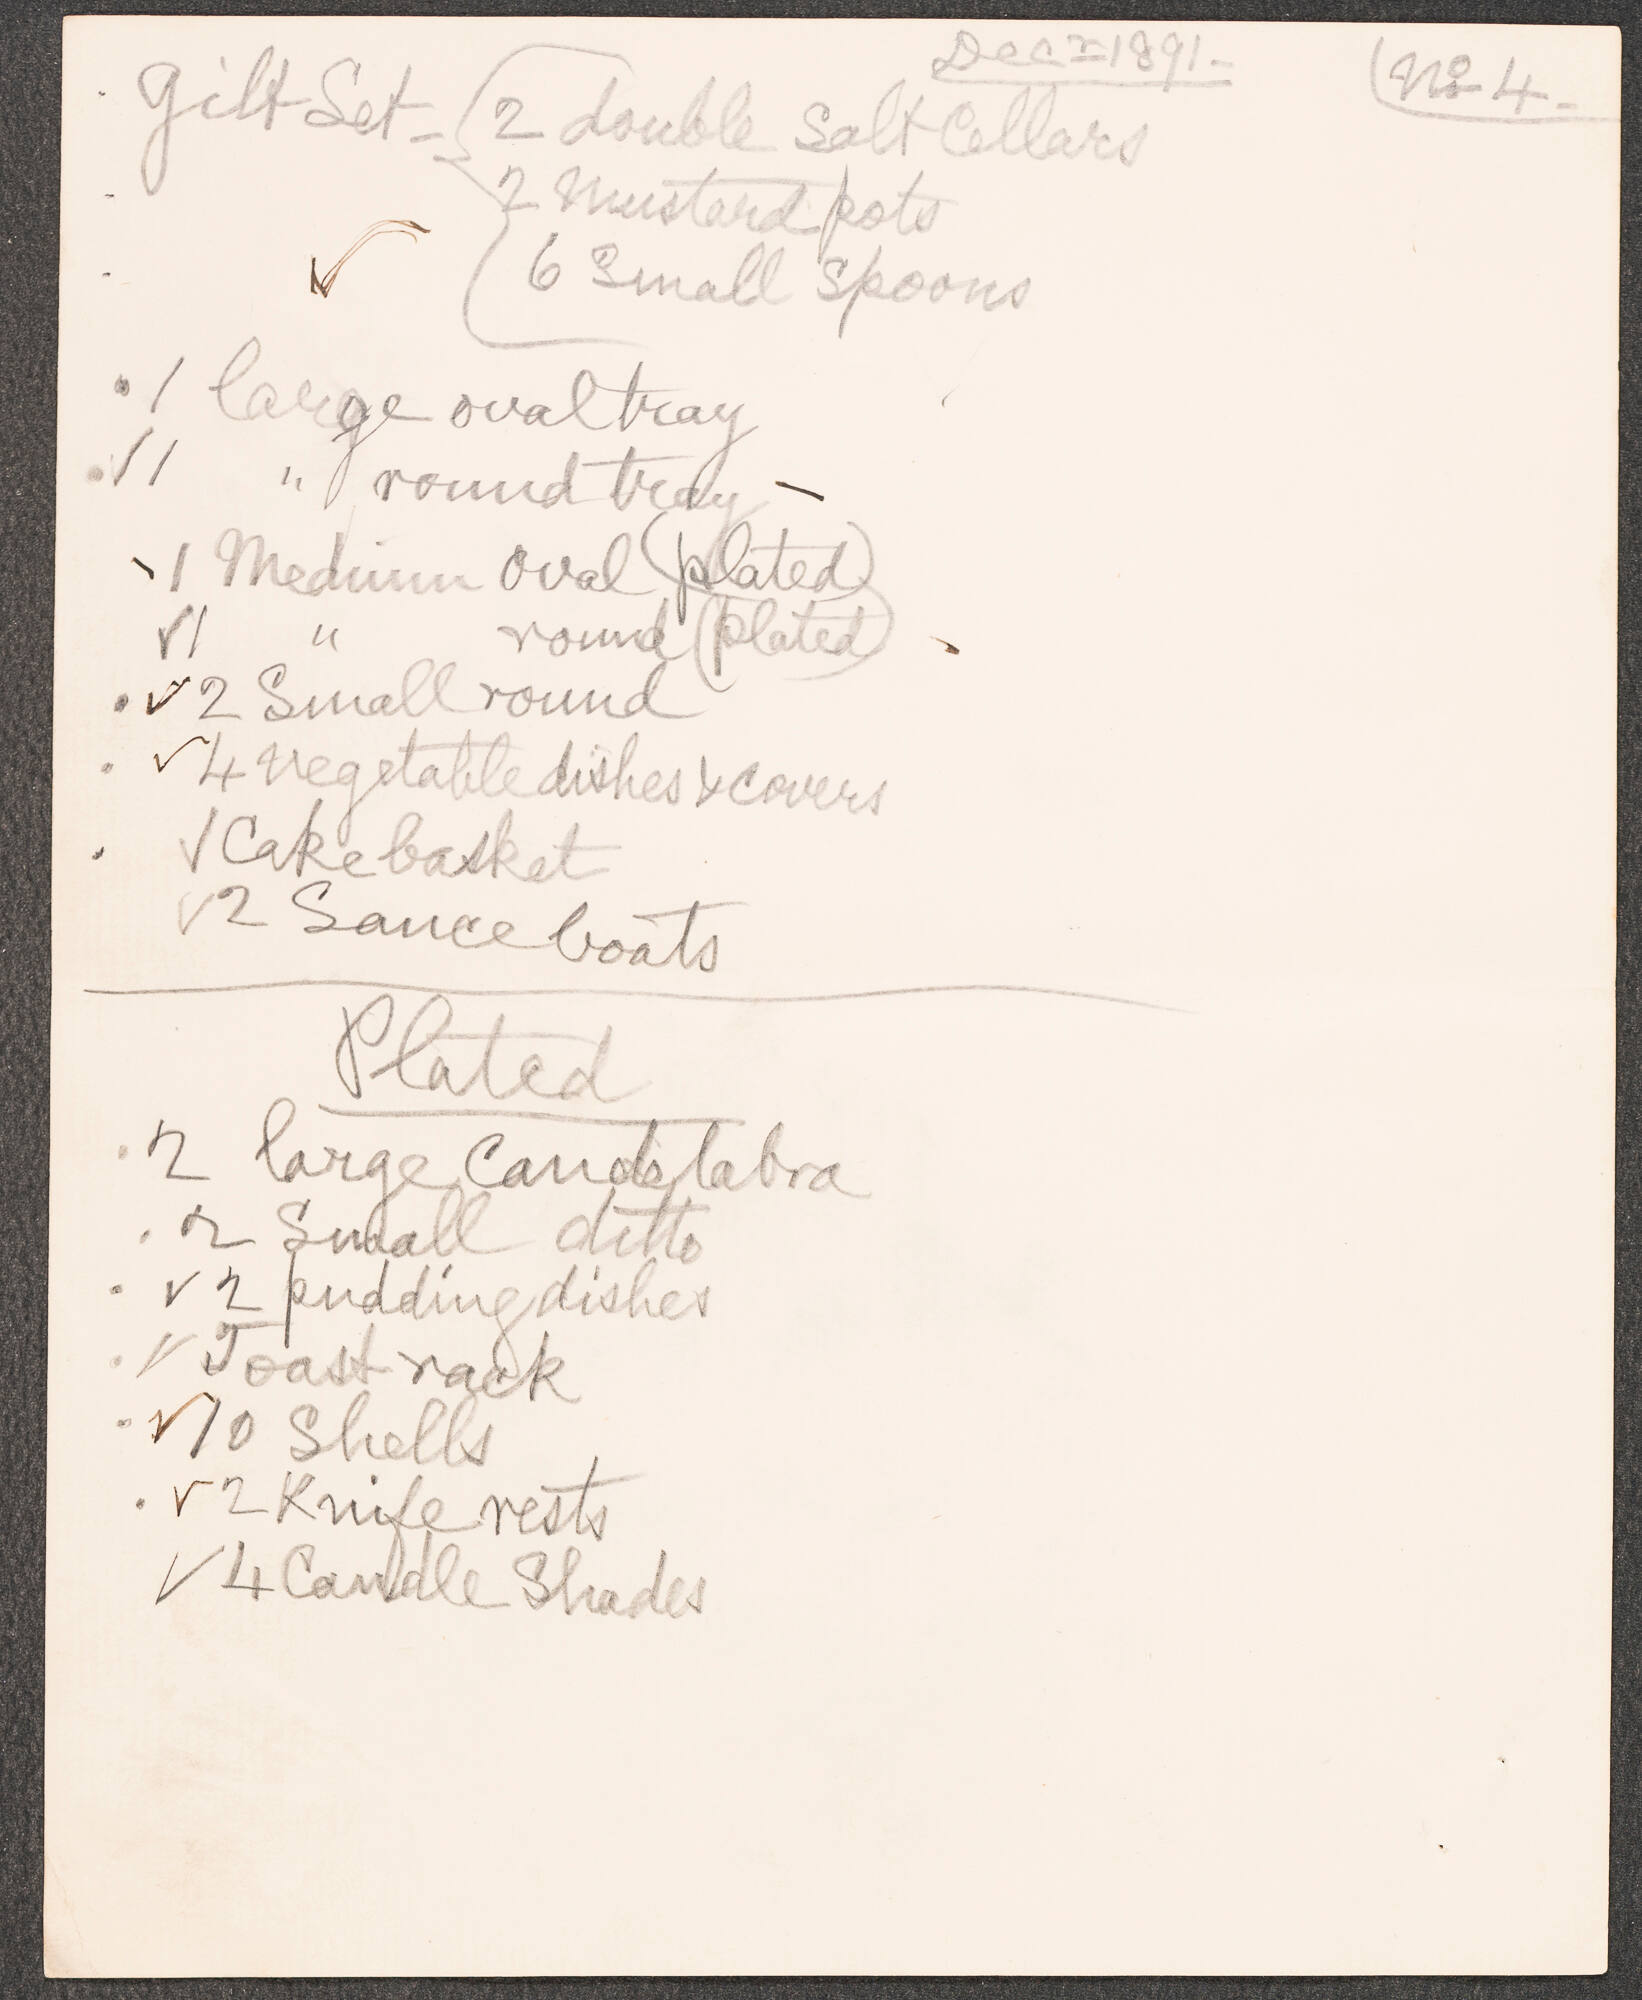 Decr 1891 -
No 4 -
Gilt Set - { 2 double Salt Cellars
2 Mustard pots
✓ 6 Small Spoons
1 large oval tray
✓ 1 " round tray -
1 Medium Oval (plated)
✓ 1 " round (plated)
✓ 2 Small round
✓ 4 vegetable dishes & covers
✓ Cake basket
✓ 2 Sauce boats
Plated
2 large Candelabra
2 Small ditto
✓ 2 pudding dishes
✓ Toast rack
✓ 10 Shells
✓ 2 Knife rests
✓ 4 Candle Shades